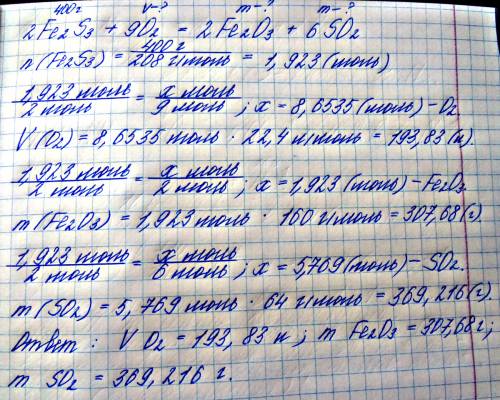 400г V-? m-? m-?
2Fe₂S₃ + 9O₂ = 2Fe₂O₃ + 6SO₂
n(Fe₂S₃) = 400г / 208 г/моль = 1,923 (моль)
1,923 моль / 2 моль = x моль / 9 моль ; x = 8,6535 (моль) - O₂
V(O₂) = 8,6535 моль · 22,4 л/моль = 193,83 (л).
1,923 моль / 2 моль = x моль / 2 моль ; x = 1,923 (моль) - Fe₂O₃
m(Fe₂O₃) = 1,923 моль · 160 г/моль = 307,68 (г).
1,923 моль / 2 моль = x моль / 6 моль ; x = 5,769 (моль) - SO₂.
m(SO₂) = 5,769 моль · 64 г/моль = 369,216 (г).
Ответ : V O₂ = 193,83 л ; m Fe₂O₃ = 307,68 г;
m SO₂ = 369,216 г.